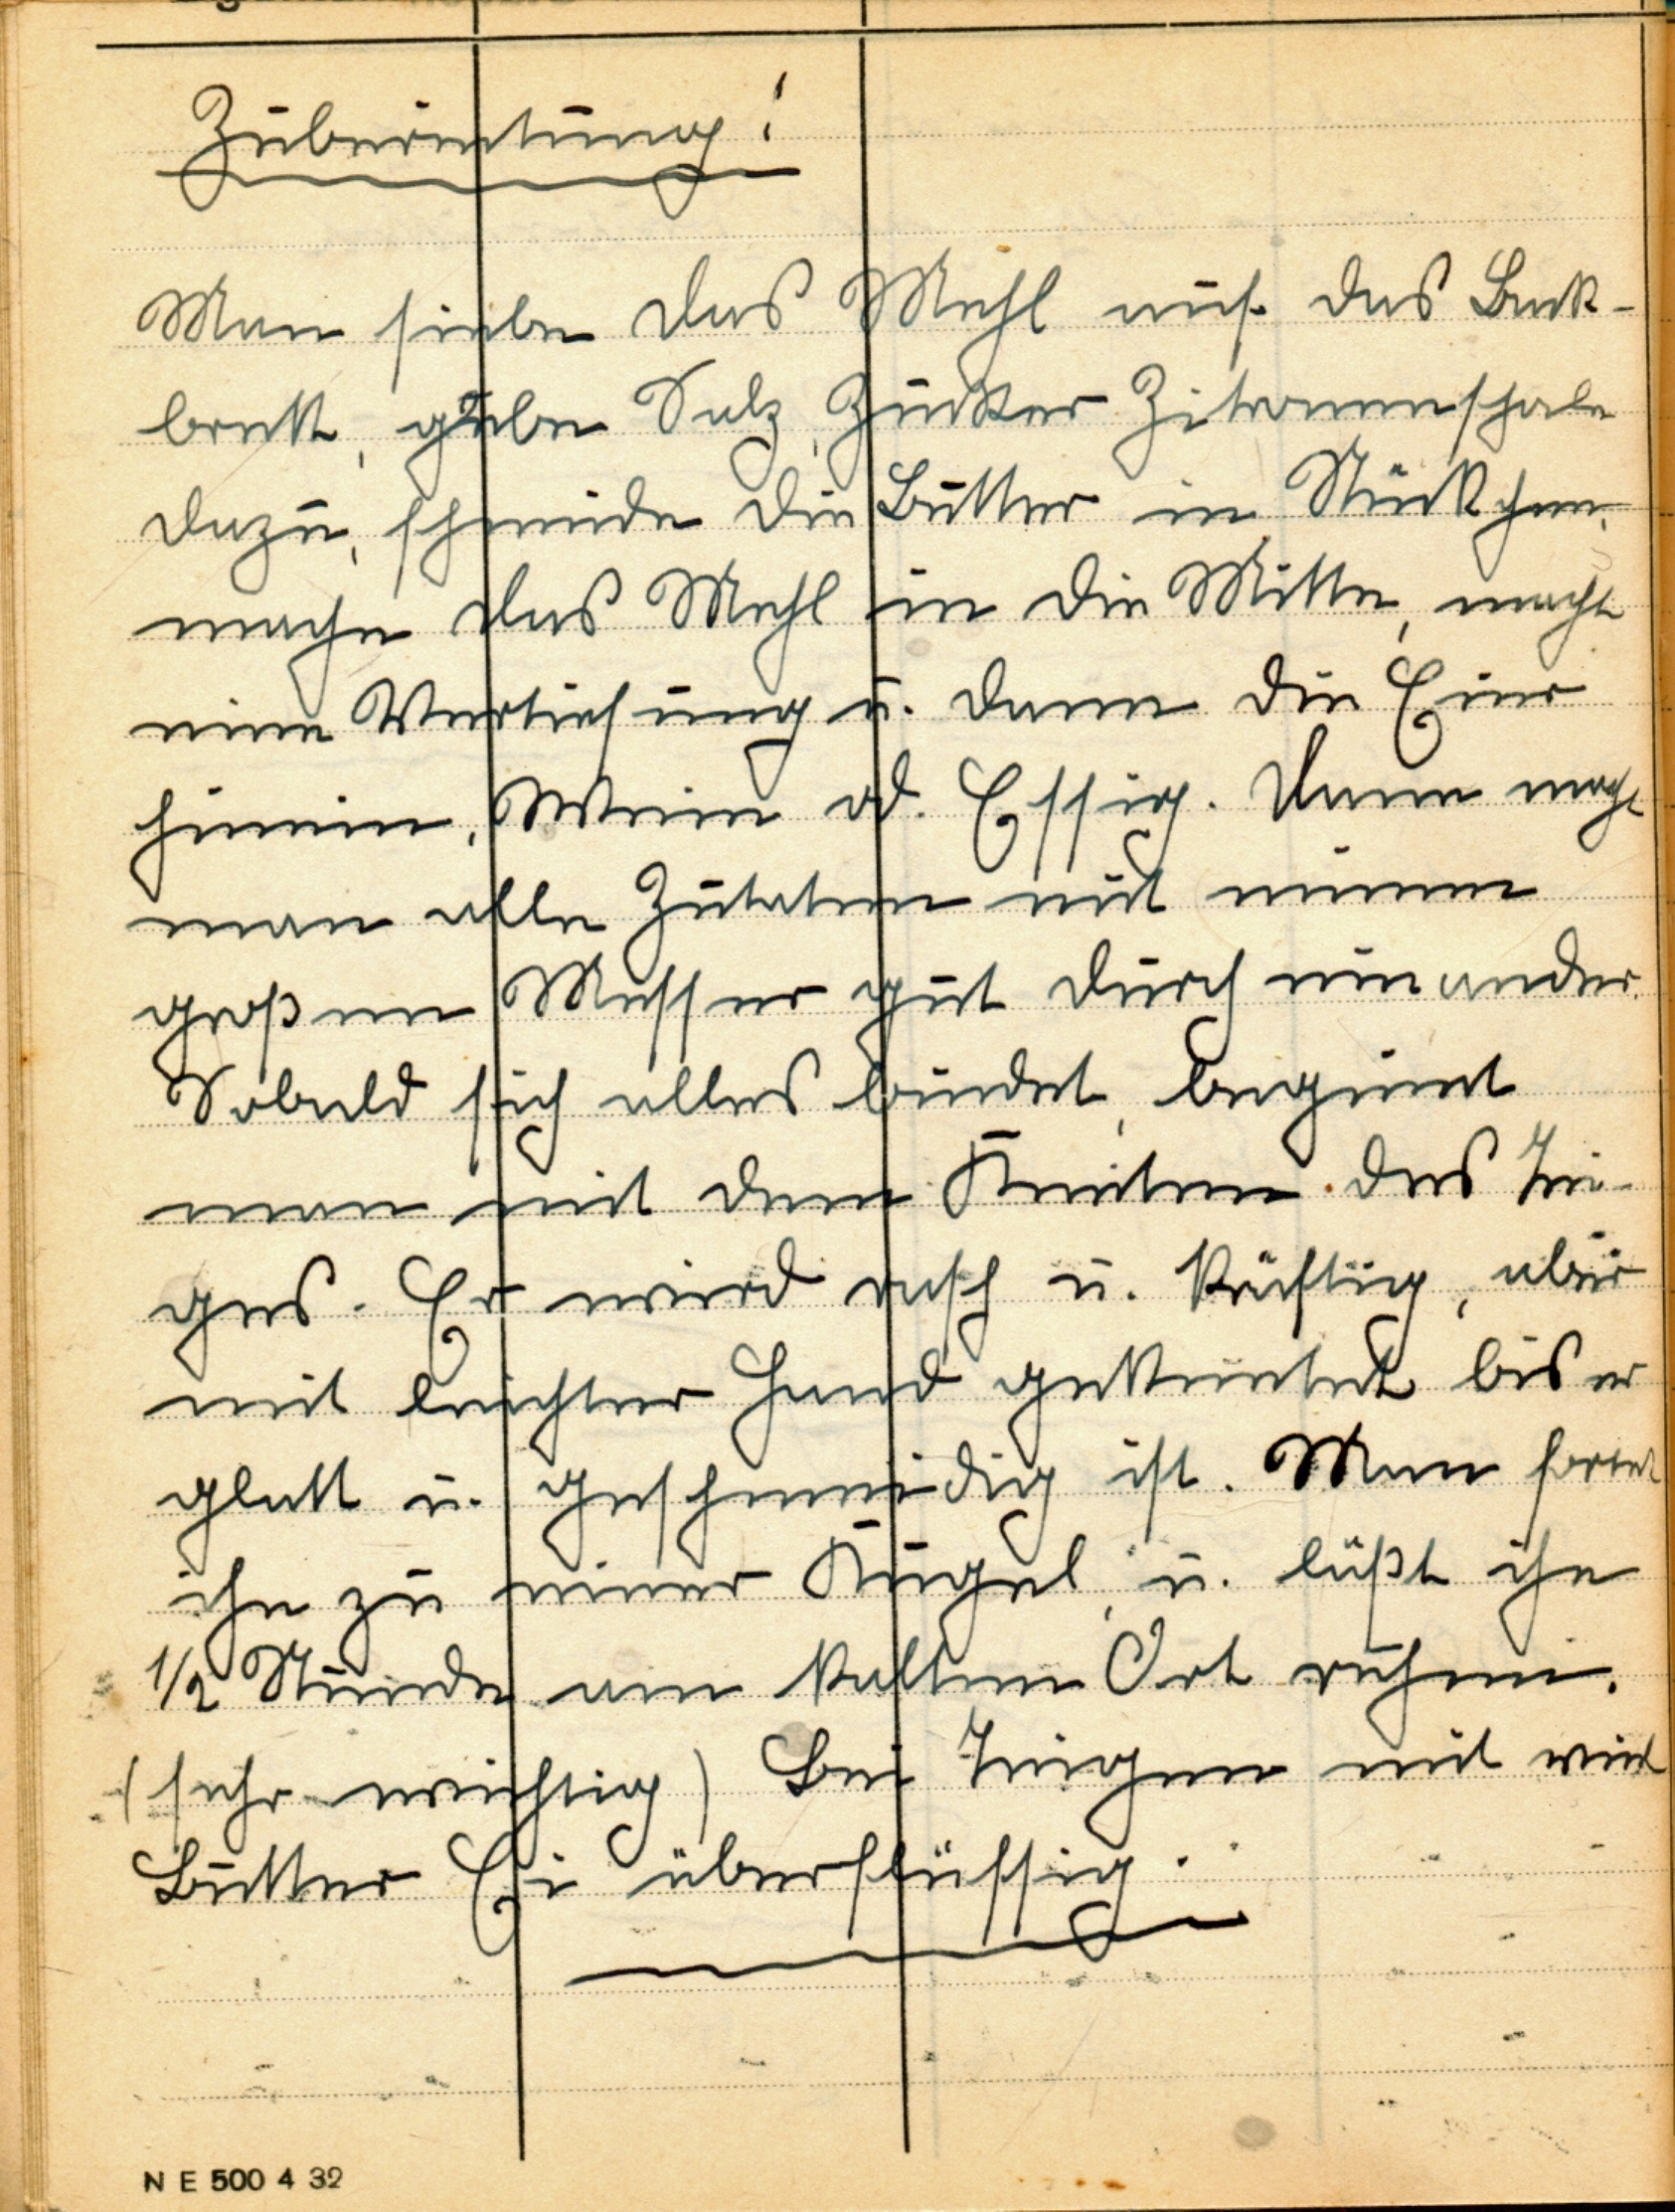 Zubereitung!
Man siebe das Mehl auf das Back-
brett, gebe Salz, Zucker Zitronenschale
dazu, schneide die Butter in Stückchen.
mache das Mehl in die Mitte, macht
eine Vertiefung u. dann die Eier
hinein, Wein od. Essig. Dann macht
man alle Zutaten mit einem
großen Messer gut durch einander.
Sobald sich alles bindet, beginnt
man mit dem Kneten des Tei-
ges. Er wird rasch u. kräftig, aber
mit leichter Hand geknetet bis er
glatt u. geschmeidig ist. Man formt
ihn zu einer Kugel, u. läßt ihn
1/2 Stunde am kalten Ort ruhen.
(sehr wichtig) Bei Teigen mit viel
Butter Ei überflüssig.
N E 500 4 32